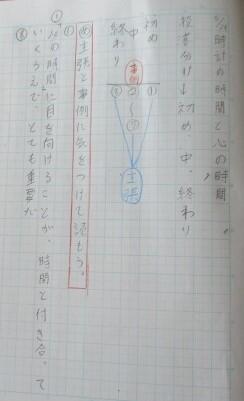 5/14時計の時間と心の時間
段落分け→初め、中、終わり
初め ①
中 ②〜⑦ 事例
終わり ⑧
主張
め 主張と事例に気をつけて読もう。
① 心の時間に目を向けることが、時間と付き合って
⑧ いくうえで、とても重要だ